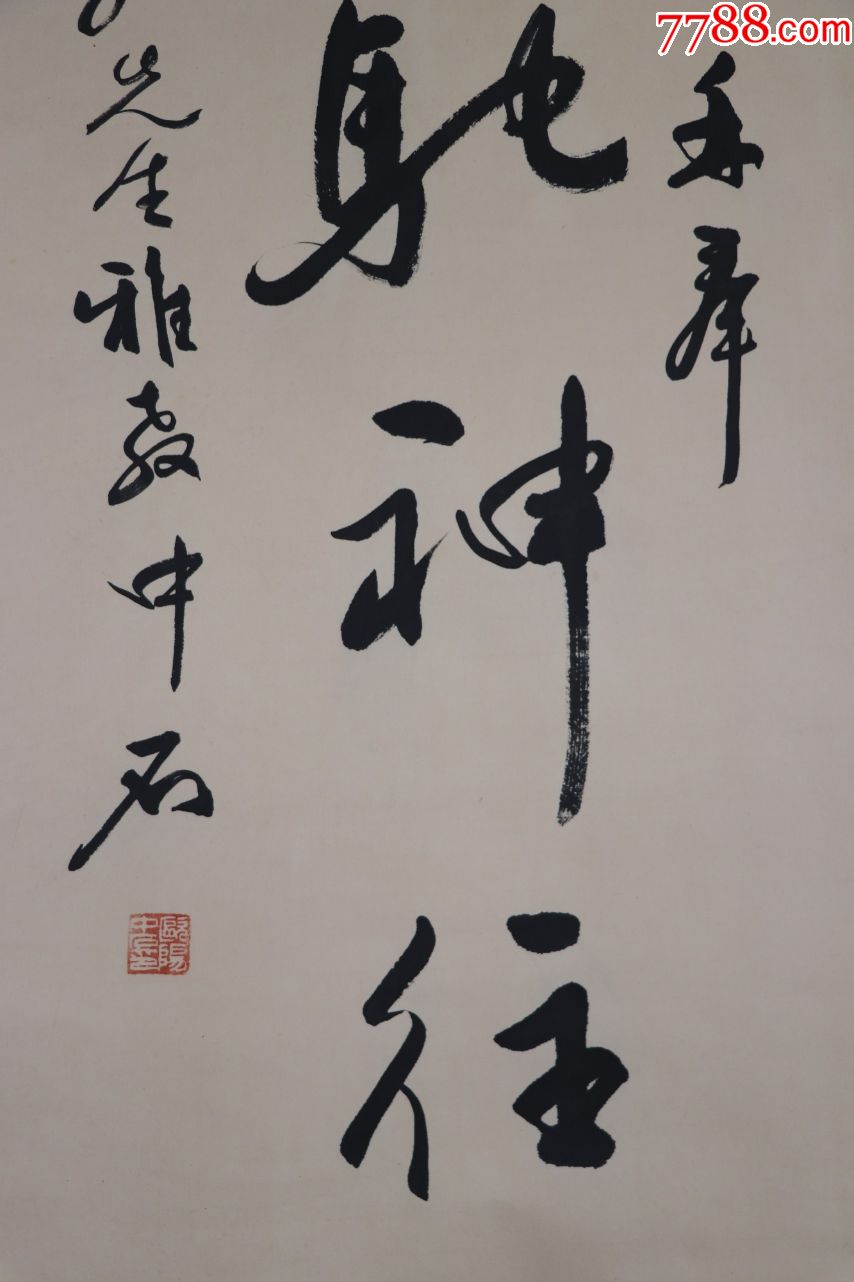 7788.com
奉
馳神往
先生雅教中石
歐陽中石印